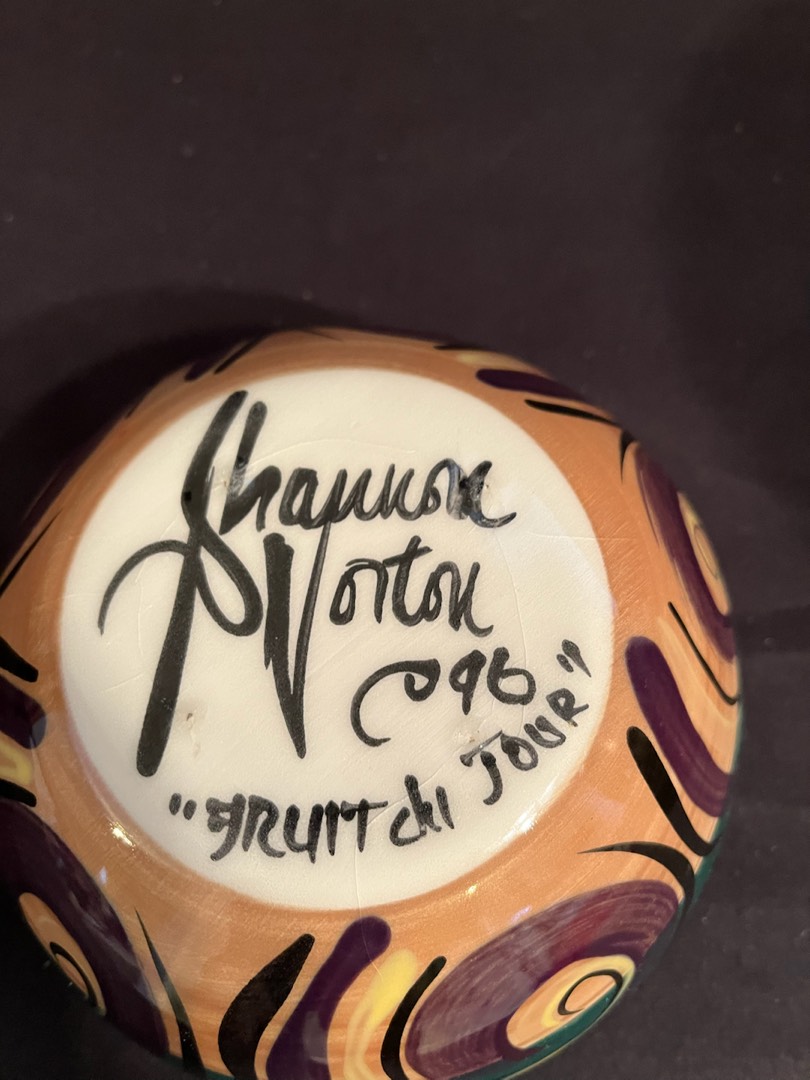 Shannon
Norton
©96
"FRUIT du JOUR"